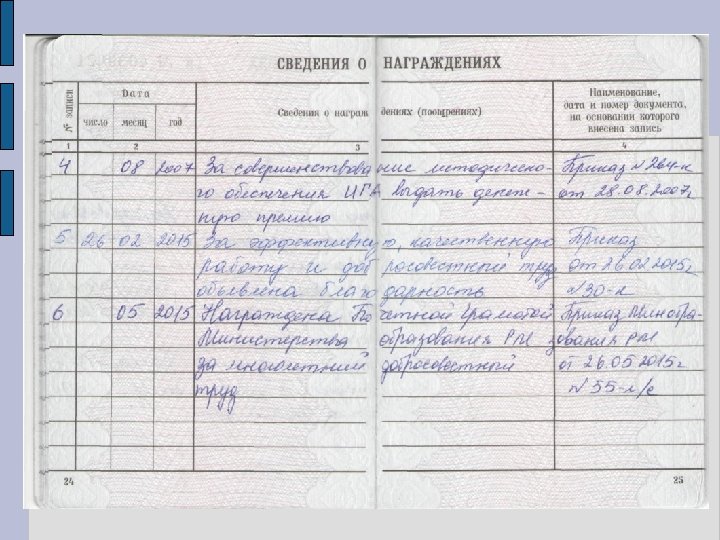 СВЕДЕНИЯ О НАГРАЖДЕНИЯХ
№ записи Дата Сведения о награждениях (поощрениях) Наименование,
число месяц год дата и номер документа,
на основании которого
внесена запись
1 2 3 4
4 08 2007 За совершенствование методическо- Приказ №264-к
го обеспечения ИГА выдать денеж- от 28.08.2007г
ную премию
5 26 02 2015 За эффективную, качественную Приказ
работу и добросовестный труд от 26.02.2015г
объявлена благодарность №30-к
6 05 2015 Награждена Почетной грамотой Приказ Минобра-
Министерства образования РМ зования РМ
за многолетний добросовестный от 26.05 2015г
труд №55-л/с
24 25